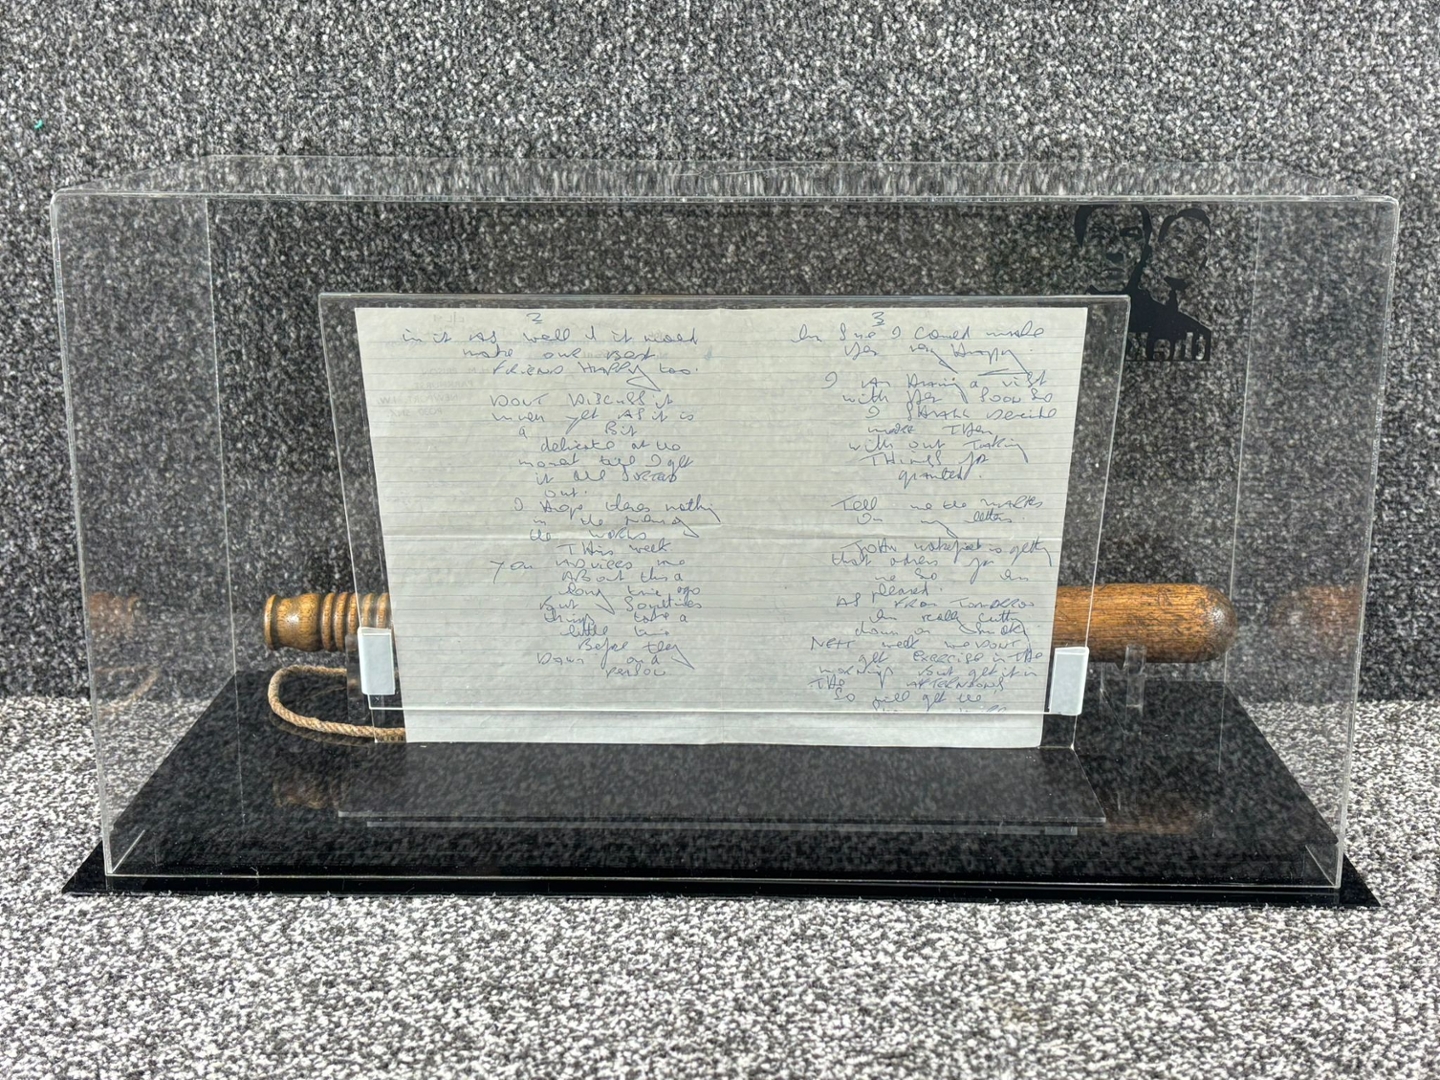 2
in it as well & it would
make our best
FRIEND HAPPY too.
DONT DISCUSS it
much yet AS it is
a Bit
delicate at the
moment till I get
it all sorted
out.
I Hope theres nothing
in the
the
THIS week
You ADVICED me
ABout this a
long time ago
Sometimes
things take a
little time
Before they
DAWN on a
person
3
Im Sure I could make
Her very Happy.
I am Having a visit
with Her SOON So
I SHALL Decide
more Then
with out Taking
THINGS for
granted.
Tell me the
On my letters
John is getting
that address for
me So Im
pleased.
AS FROM TOMORROW
Im really cutting
down on Smoking
NEXT week we DONT
get EXERCISE in THE
mornings But get it in
THE AFTERNOONS
So will get the